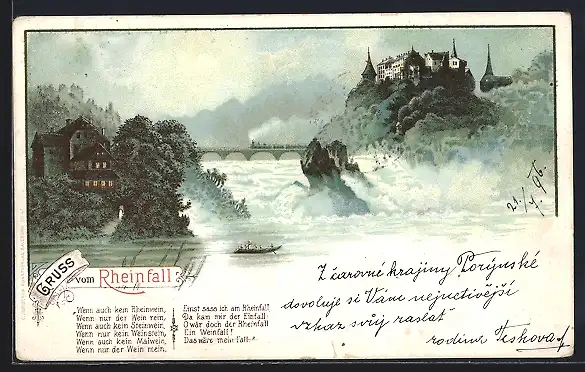 GRUSS
vom Rheinfall
Wenn auch kein Rheinwein,
Wenn nur der Wein rein,
Wenn auch kein Steinwein,
Wenn nur kein Weinstein,
Wenn auch kein Malwein,
Wenn nur der Wein mein.
Einst sass ich am Rheinfall
Da kam mir der Einfall:
O wär doch der Rheinfall
Ein Weinfall!
Das wäre mein Fall!
21/ 96.
Z čarovné krajiny Porýnské
dovoluje si Vám nejuctivější
vzkaz svůj zaslat
rodina